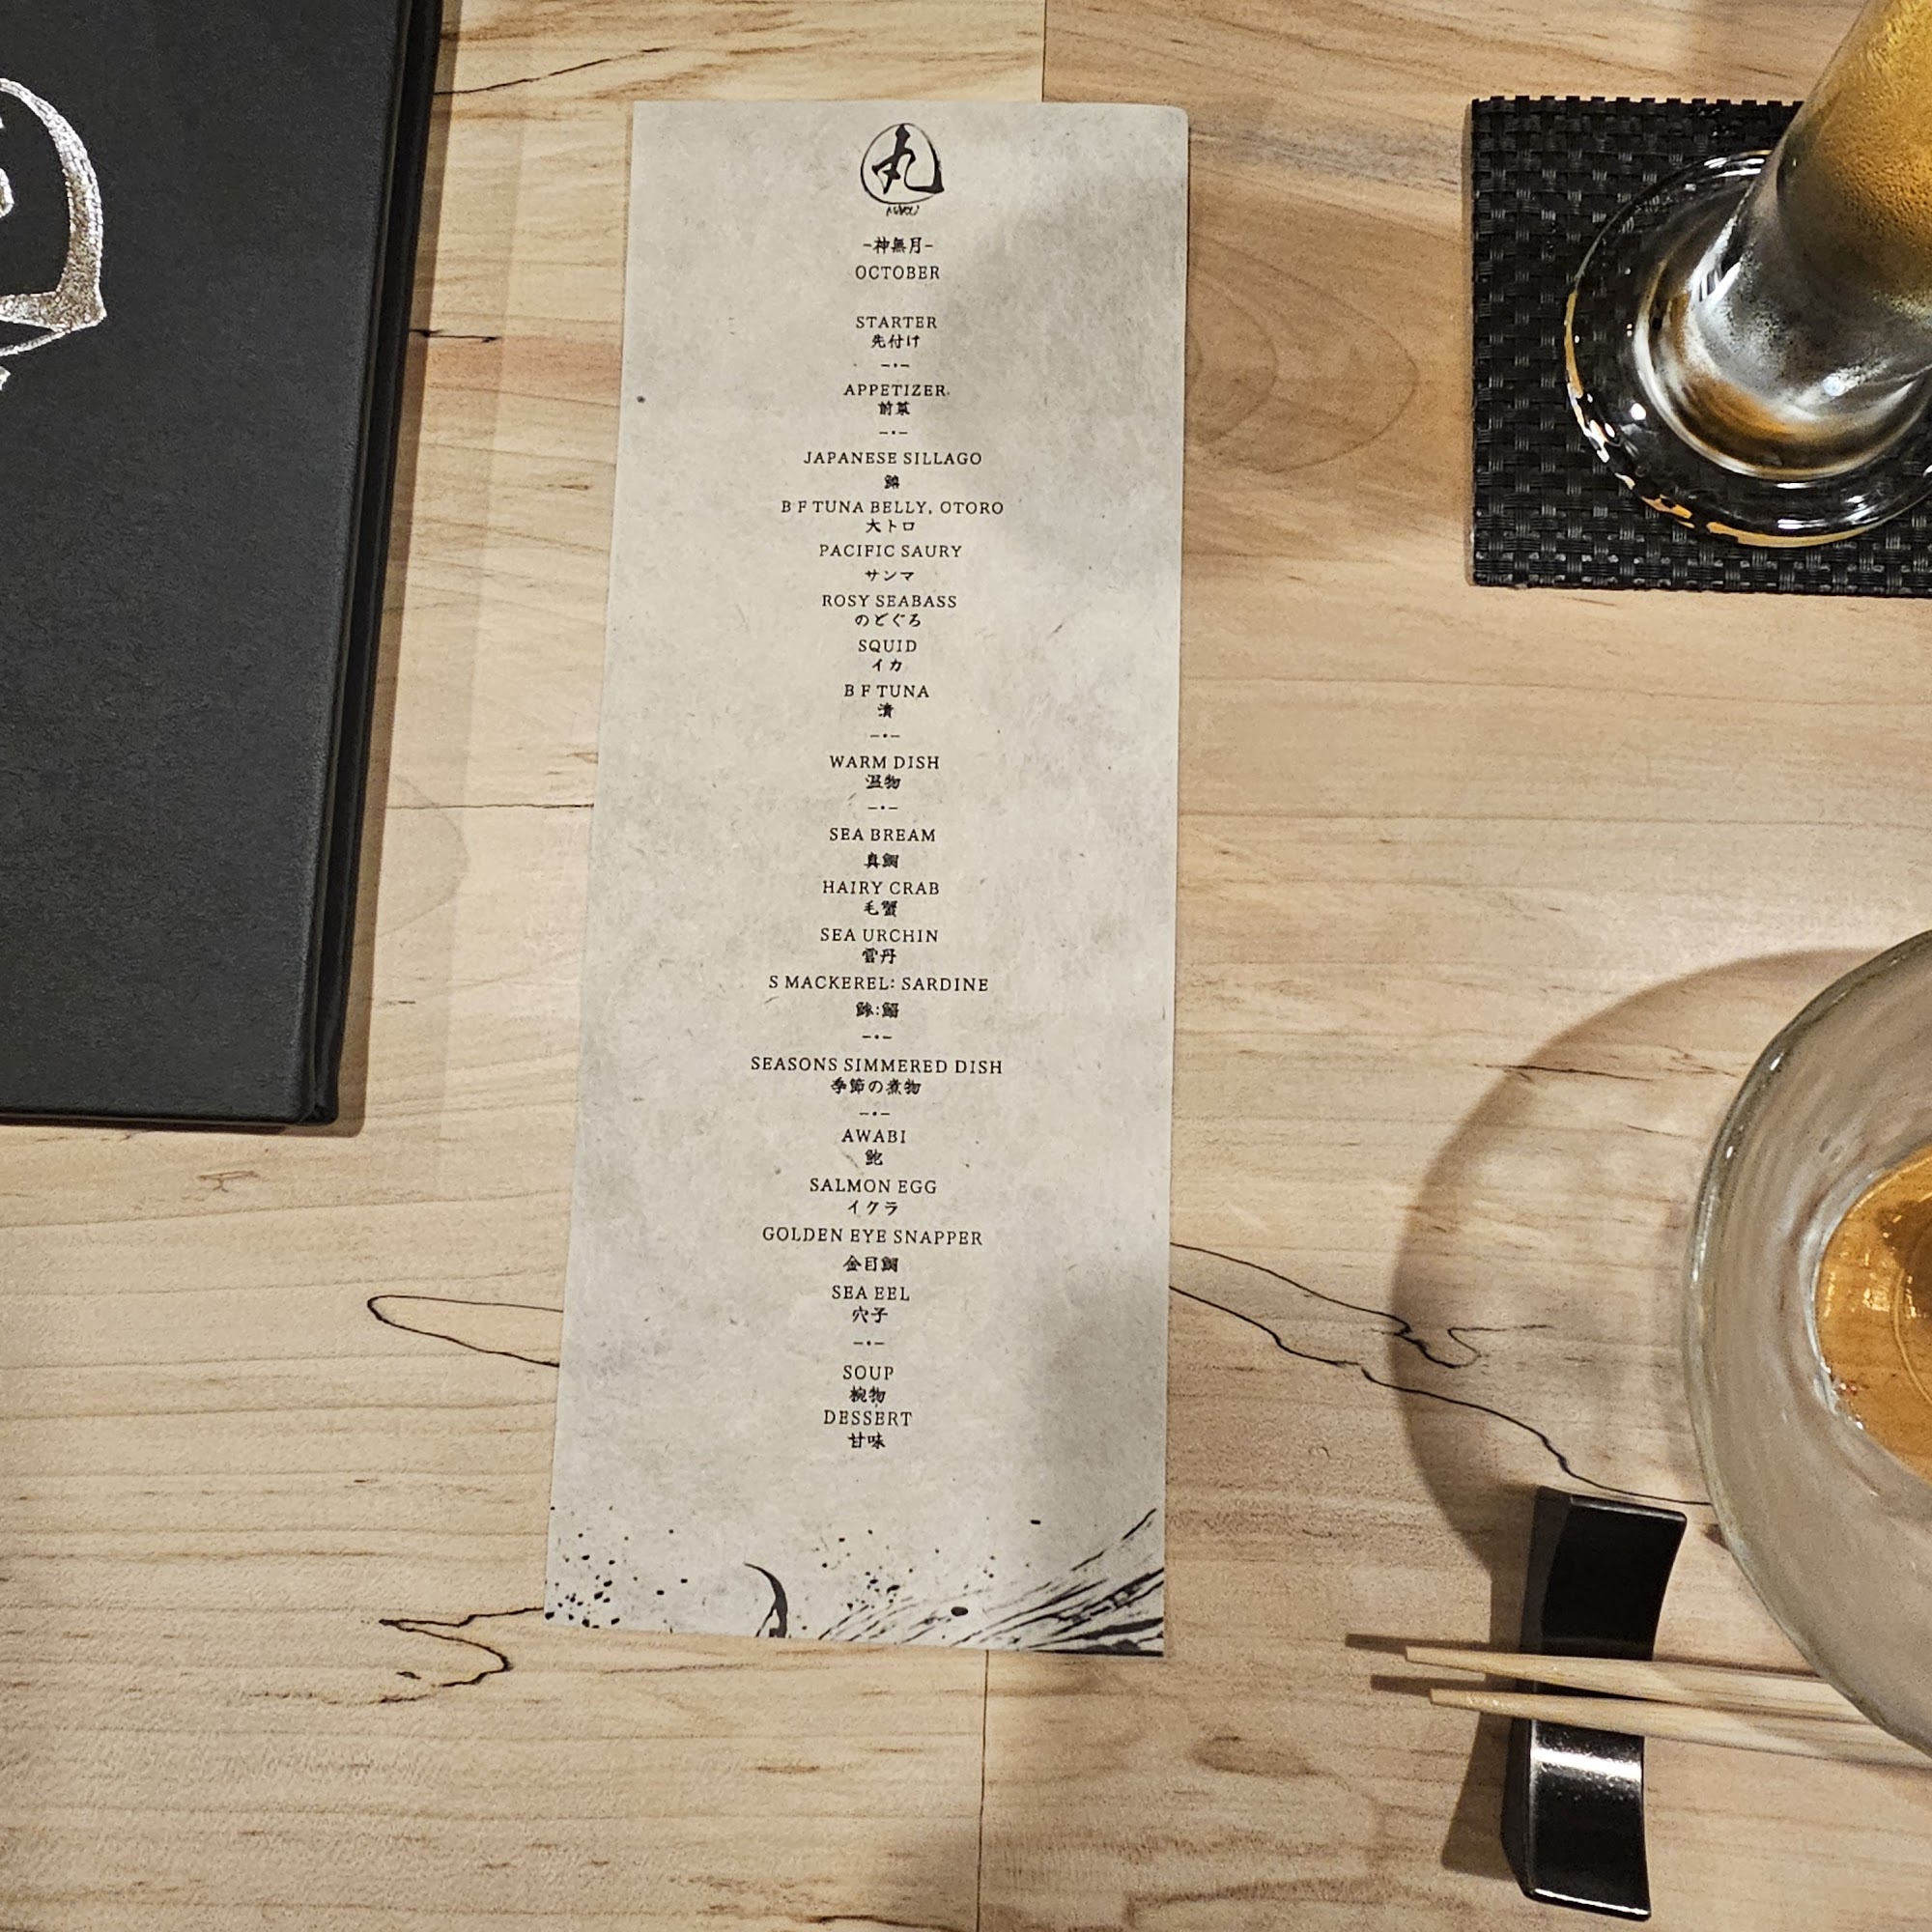 丸
-神無月-
OCTOBER
STARTER
先付け
APPETIZER
前菜
JAPANESE SILLAGO
鱚
B F TUNA BELLY, OTORO
大トロ
PACIFIC SAURY
サンマ
ROSY SEABASS
のどぐろ
SQUID
イカ
B F TUNA
漬
WARM DISH
温物
SEA BREAM
真鯛
HAIRY CRAB
毛蟹
SEA URCHIN
雲丹
S MACKEREL: SARDINE
SEASONS SIMMERED DISH
季節の煮物
AWABI
鮑
SALMON EGG
イクラ
GOLDEN EYE SNAPPER
金目鯛
SEA EEL
穴子
SOUP
椀物
DESSERT
甘味